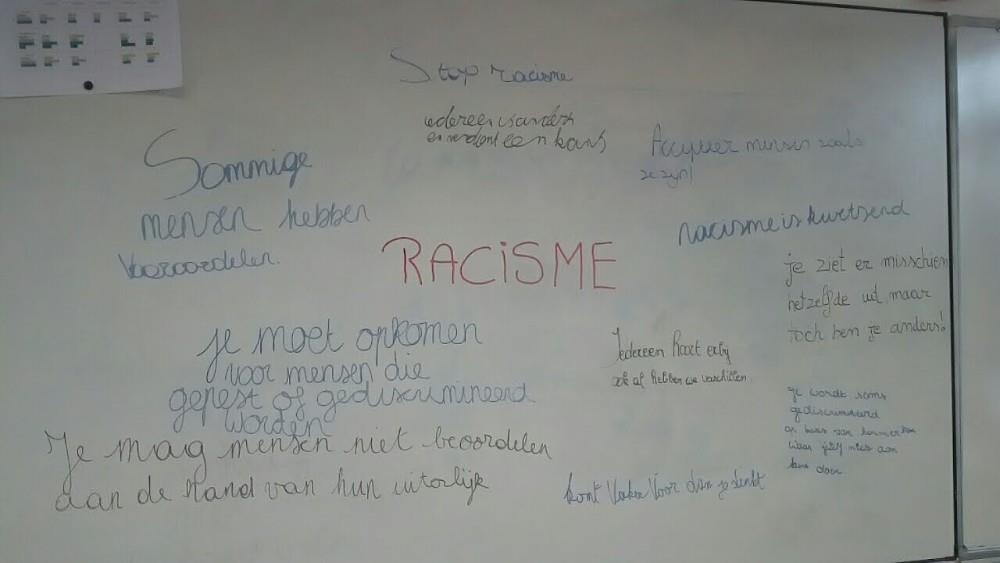 Stop racisme
iedereen is anders
en verdient een kans
Accepteer mensen zoals
ze zijn!
Sommige
mensen hebben
Vooroordelen.
racisme is kwetsend
RACiSME
je ziet er misschien
hetzelfde uit, maar
toch ben je anders!
je moet opkomen
voor mensen die
gepest of gediscrimineerd
worden
Iedereen hoort erbij
ook al hebben we verschillen
Je mag mensen niet beoordelen
aan de hand van hun uiterlijk
je wordt soms
gediscrimineerd
op basis van kenmerken
waar jij niks aan
kunt doen
komt Vaker Voor dan je denkt